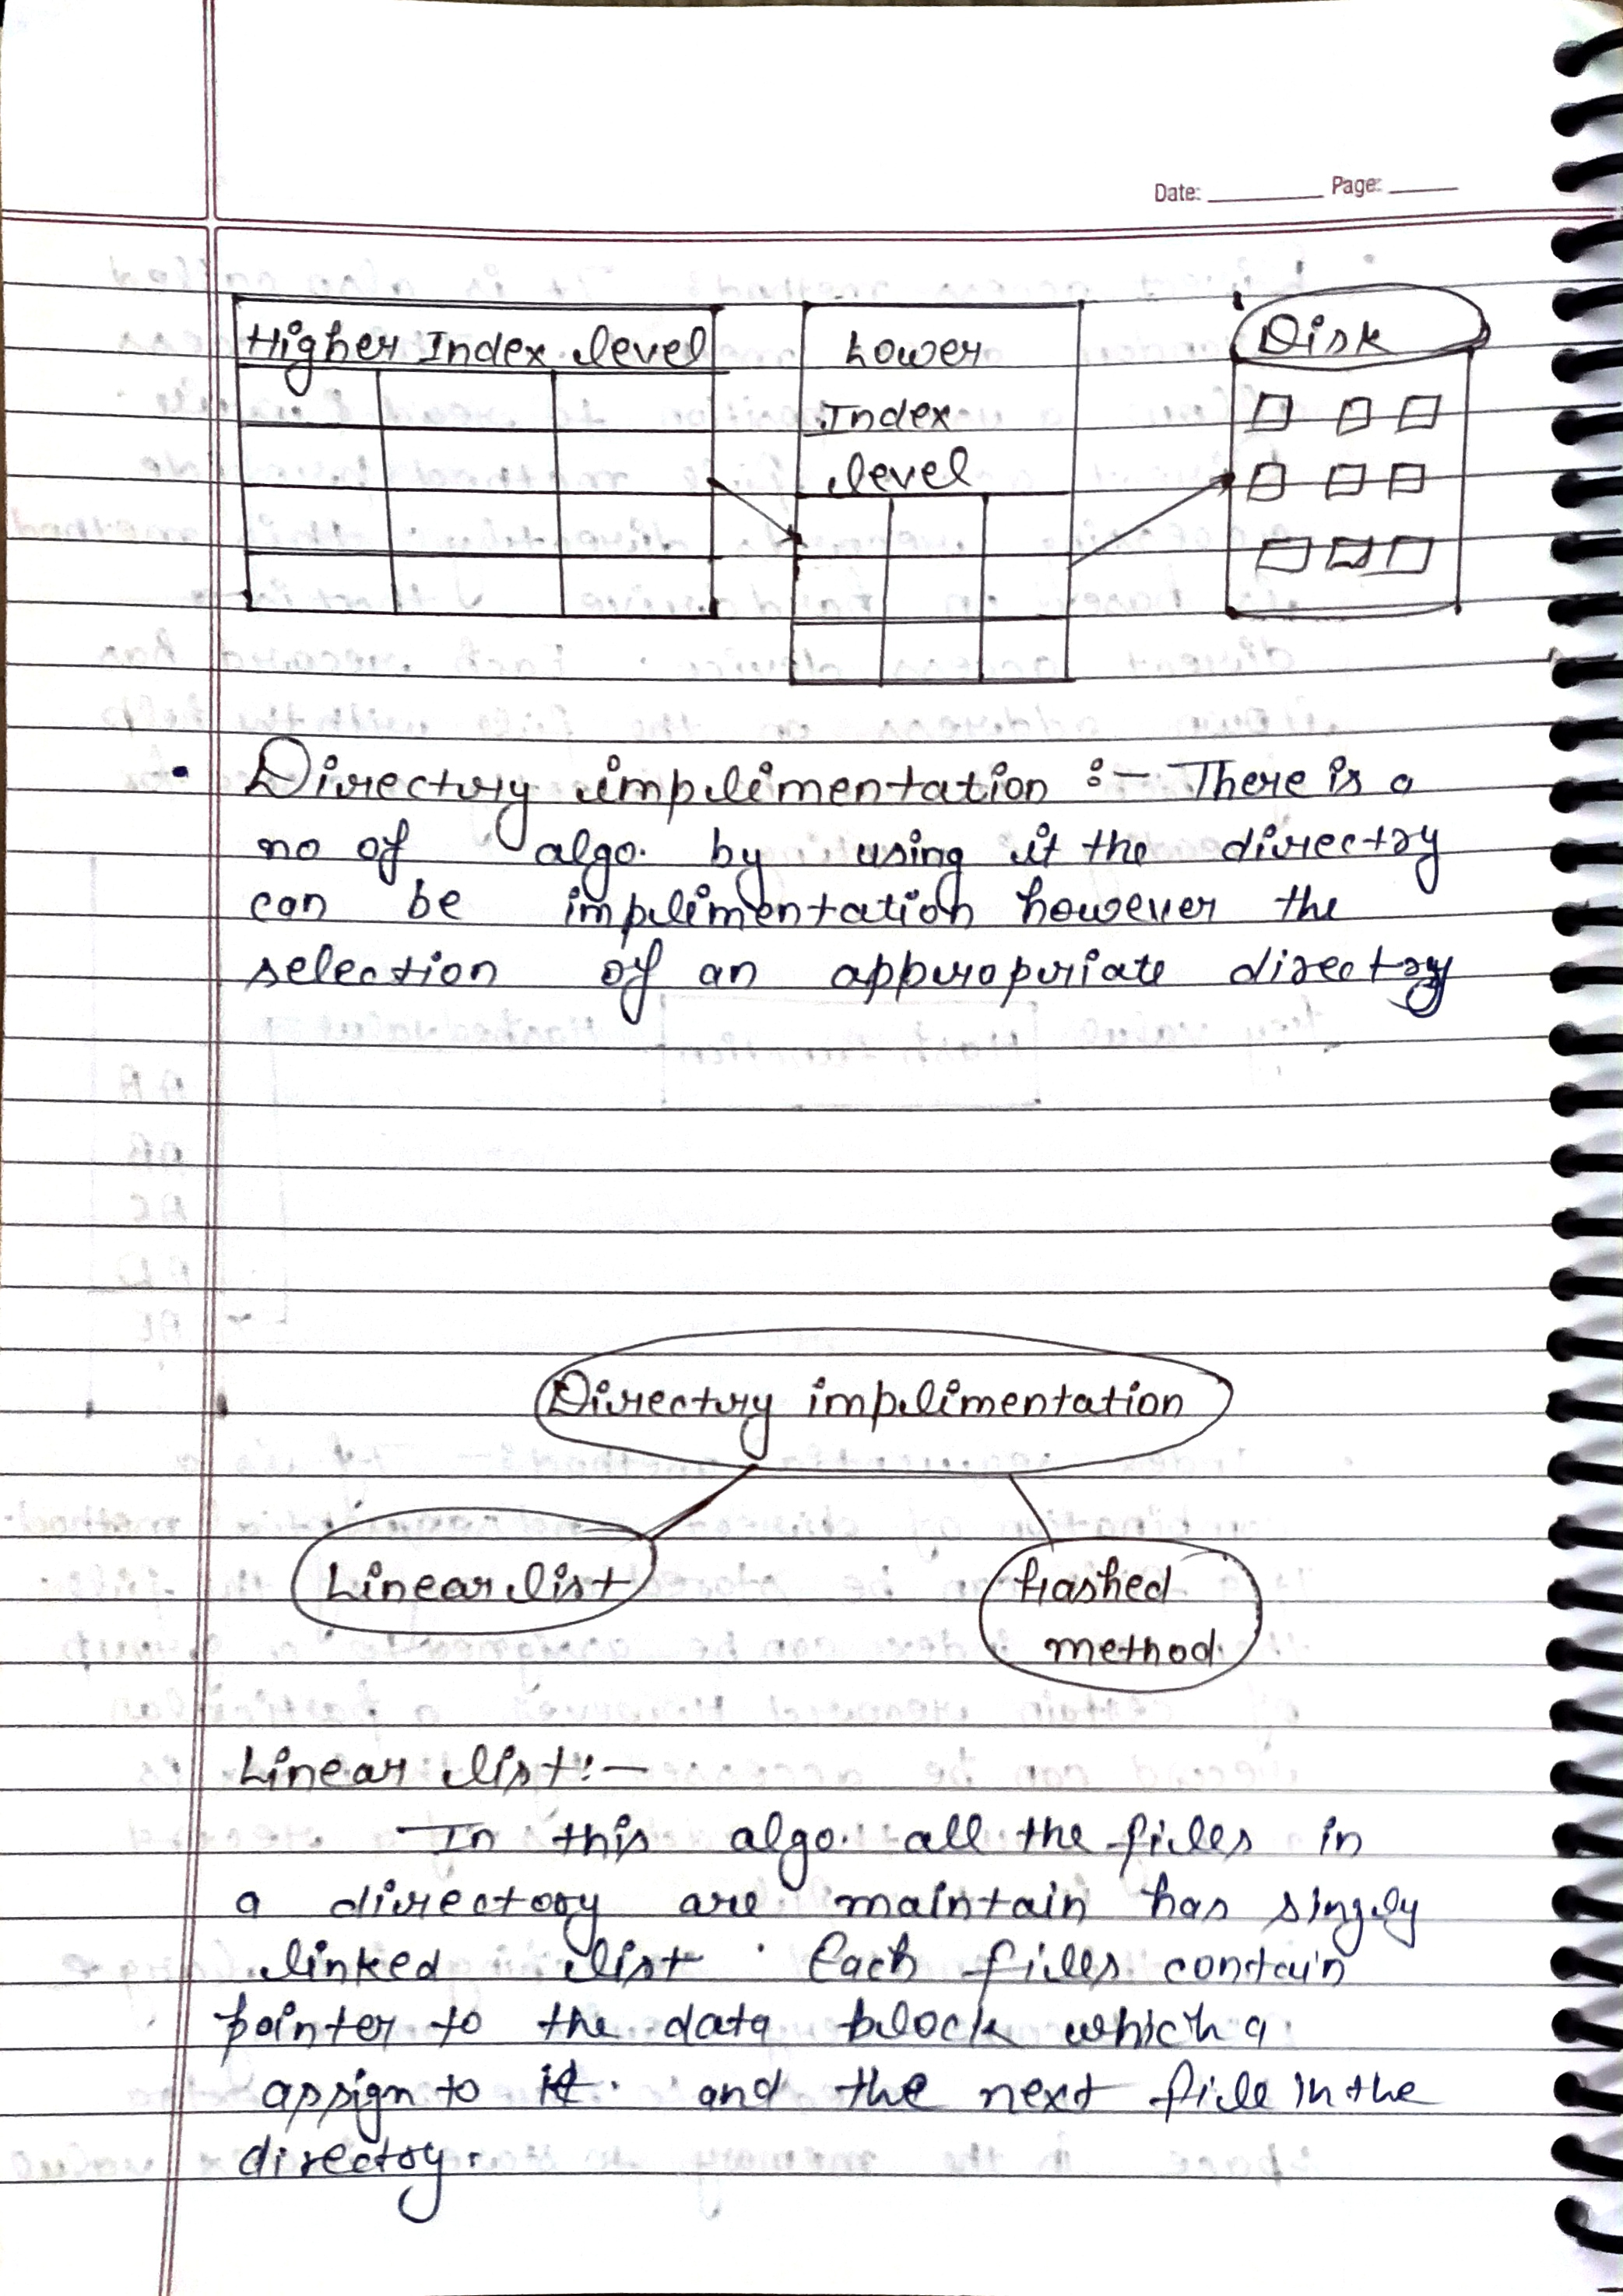 Date: Page:
Higher Index level
Lower
Index
level
Disk
• Directory implimentation :- There is a
no of algo. by using it the directory
can be implimentation however the
selection of an appropriate directory
Directory implimentation
Linear list
hashed
method.
Linear list:-
In this algo. all the files in
a directory are maintain has singly
linked list. Each files contain
pointer to the data block which a
assign to it. and the next file in the
directory.